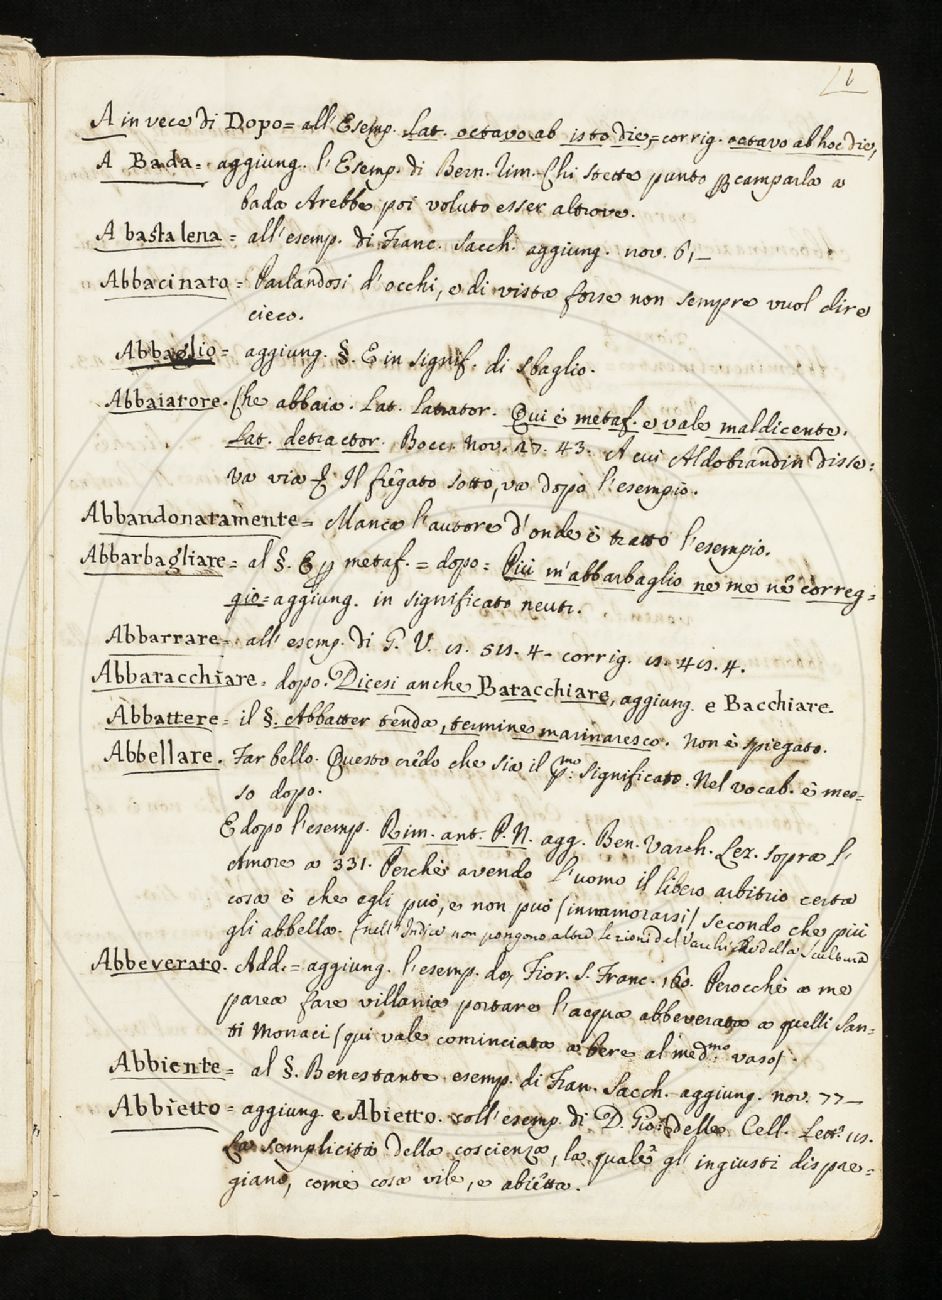 1
A in vece di Dopo = all'Esemp. Lat. octavo ab isto die, = corrig. octavo ab hoc die,
A Bada = aggiung. l'Esemp. di Bern. rim. Chi stette punto camparla a
bada Arebbe poi voluto esser altrove.
A basta lena = all'esemp. di Franc. Sacch. aggiung. nov. 6, –
Abbacinato = Parlandosi d'occhi, e di vista forse non sempre vuol dire
cieco.
Abbaglio = aggiung. §. E in signif. di sbaglio.
Abbaiatore. Che abbaia. Lat. latrator. Qui è metaf. e vale maldicente.
Lat. detractor. Bocc. Nov. 27. 43. A cui Aldobrandin disse:
Va via Il fregato sotto, va dopo l'esempio.
Abbandonatamente = Manca l'autore d'onde è tratto l'esempio.
Abbarbagliare = al §. E metaf. = dopo = Più m'abbarbaglio ne me nè correg=
gio = aggiung. in significato neutr.
Abbarrare = all'esemp. di G. V. corrig.
Abbaracchiare = dopo. Dicesi anche Baracchiare, aggiung. e Bacchiare.
Abbattere = il §. Abbatter tenda, termine marinaresco. Non è spiegato.
Abbellare. Far bello. Questo credo che sia il pmo. significato. Nel vocab. è mes=
so dopo.
E dopo l'esemp. Rim. ant. P. N. agg. Ben. Varch. Lez. sopra l'
Amore a 331. Perchè avendo l'uomo il libero arbitrio certa
cosa è che egli può, e non può (innamorarsi) secondo che più
gli abbella. (nell'Indice non pongono altre lezioni del Varchi della Scultura
Abbeverato. Add. = aggiung. l'esemp. de, Fior. S. Franc. 160. Perocchè a me
parea fare villania portare l'acqua abbeverata a quelli San=
ti Monaci (qui vale cominciata a bere al medmo. vaso).
Abbiente = al §. Benestante esemp. di Fran. Sacch. aggiung. nov. 77 –
Abbietto = aggiung. e Abietto. coll'esemp. di D. Gio: delle Cell. Lett.
La semplicità della coscienza, la quale gl'ingiusti dispre=
giano, come cosa vile, e abietta.